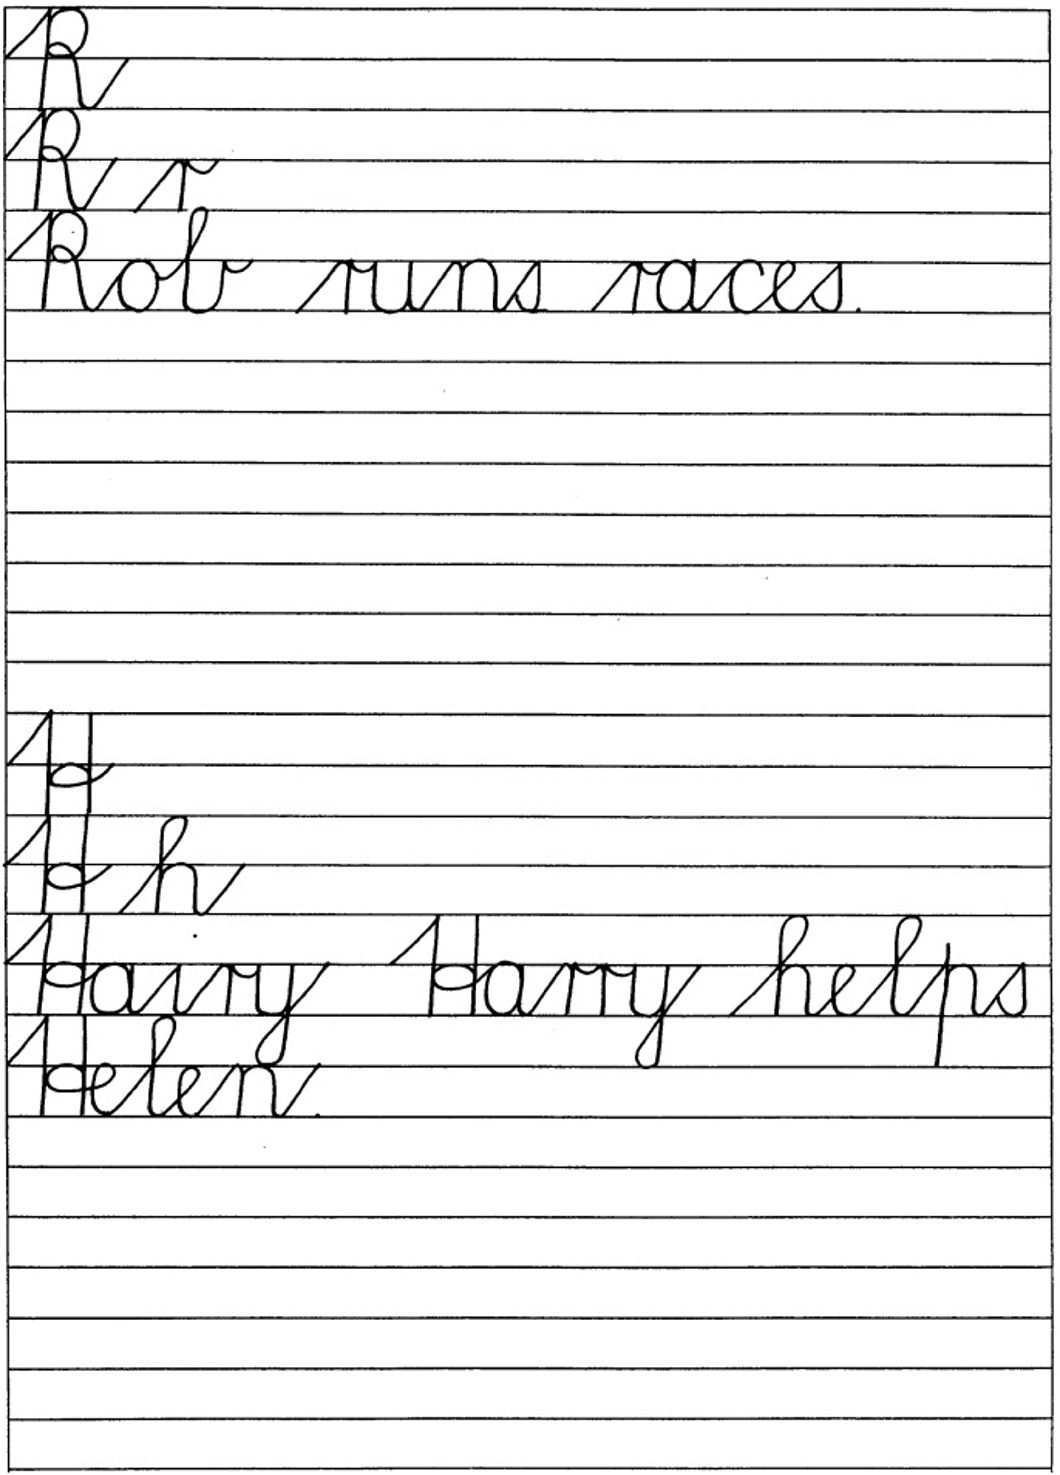 R
R r
Rob runs races.
H
H h
Hairy Harry helps
Helen.